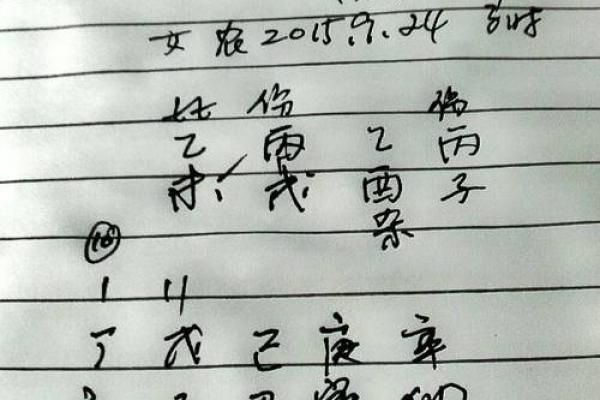 女 农2015.9.24 子时
比 伤 伤
乙 丙 乙 丙
未 戌 酉 子
杀
1 11
丁 戊 己 庚 辛